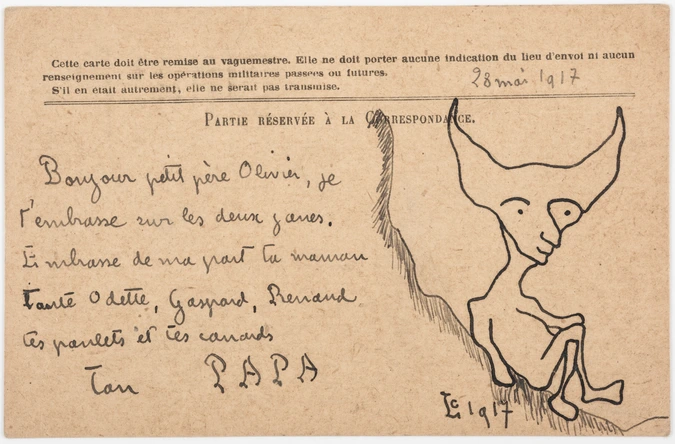 Cette carte doit être remise au vaguemestre. Elle ne doit porter aucune indication du lieu d'envoi ni aucun
renseignement sur les opérations militaires passées ou futures.
S'il en était autrement, elle ne serait pas transmise.
28 mai 1917
PARTIE RÉSERVÉE À LA CORRESPONDANCE.
Bonjour petit père Olivier, je
t'embrasse sur les deux joues.
Embrasse de ma part ta maman
tante Odette, Gaspard, Renaud
tes poulets et tes canards
Ton PAPA
1917